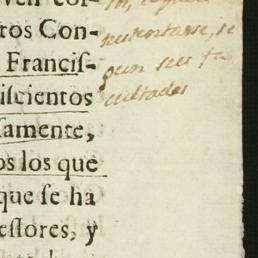 ros Con-
Francis-
iscientos
samente,
os los que
que se ha
estores, y
sustentarse, se
gun sus fa
cultades